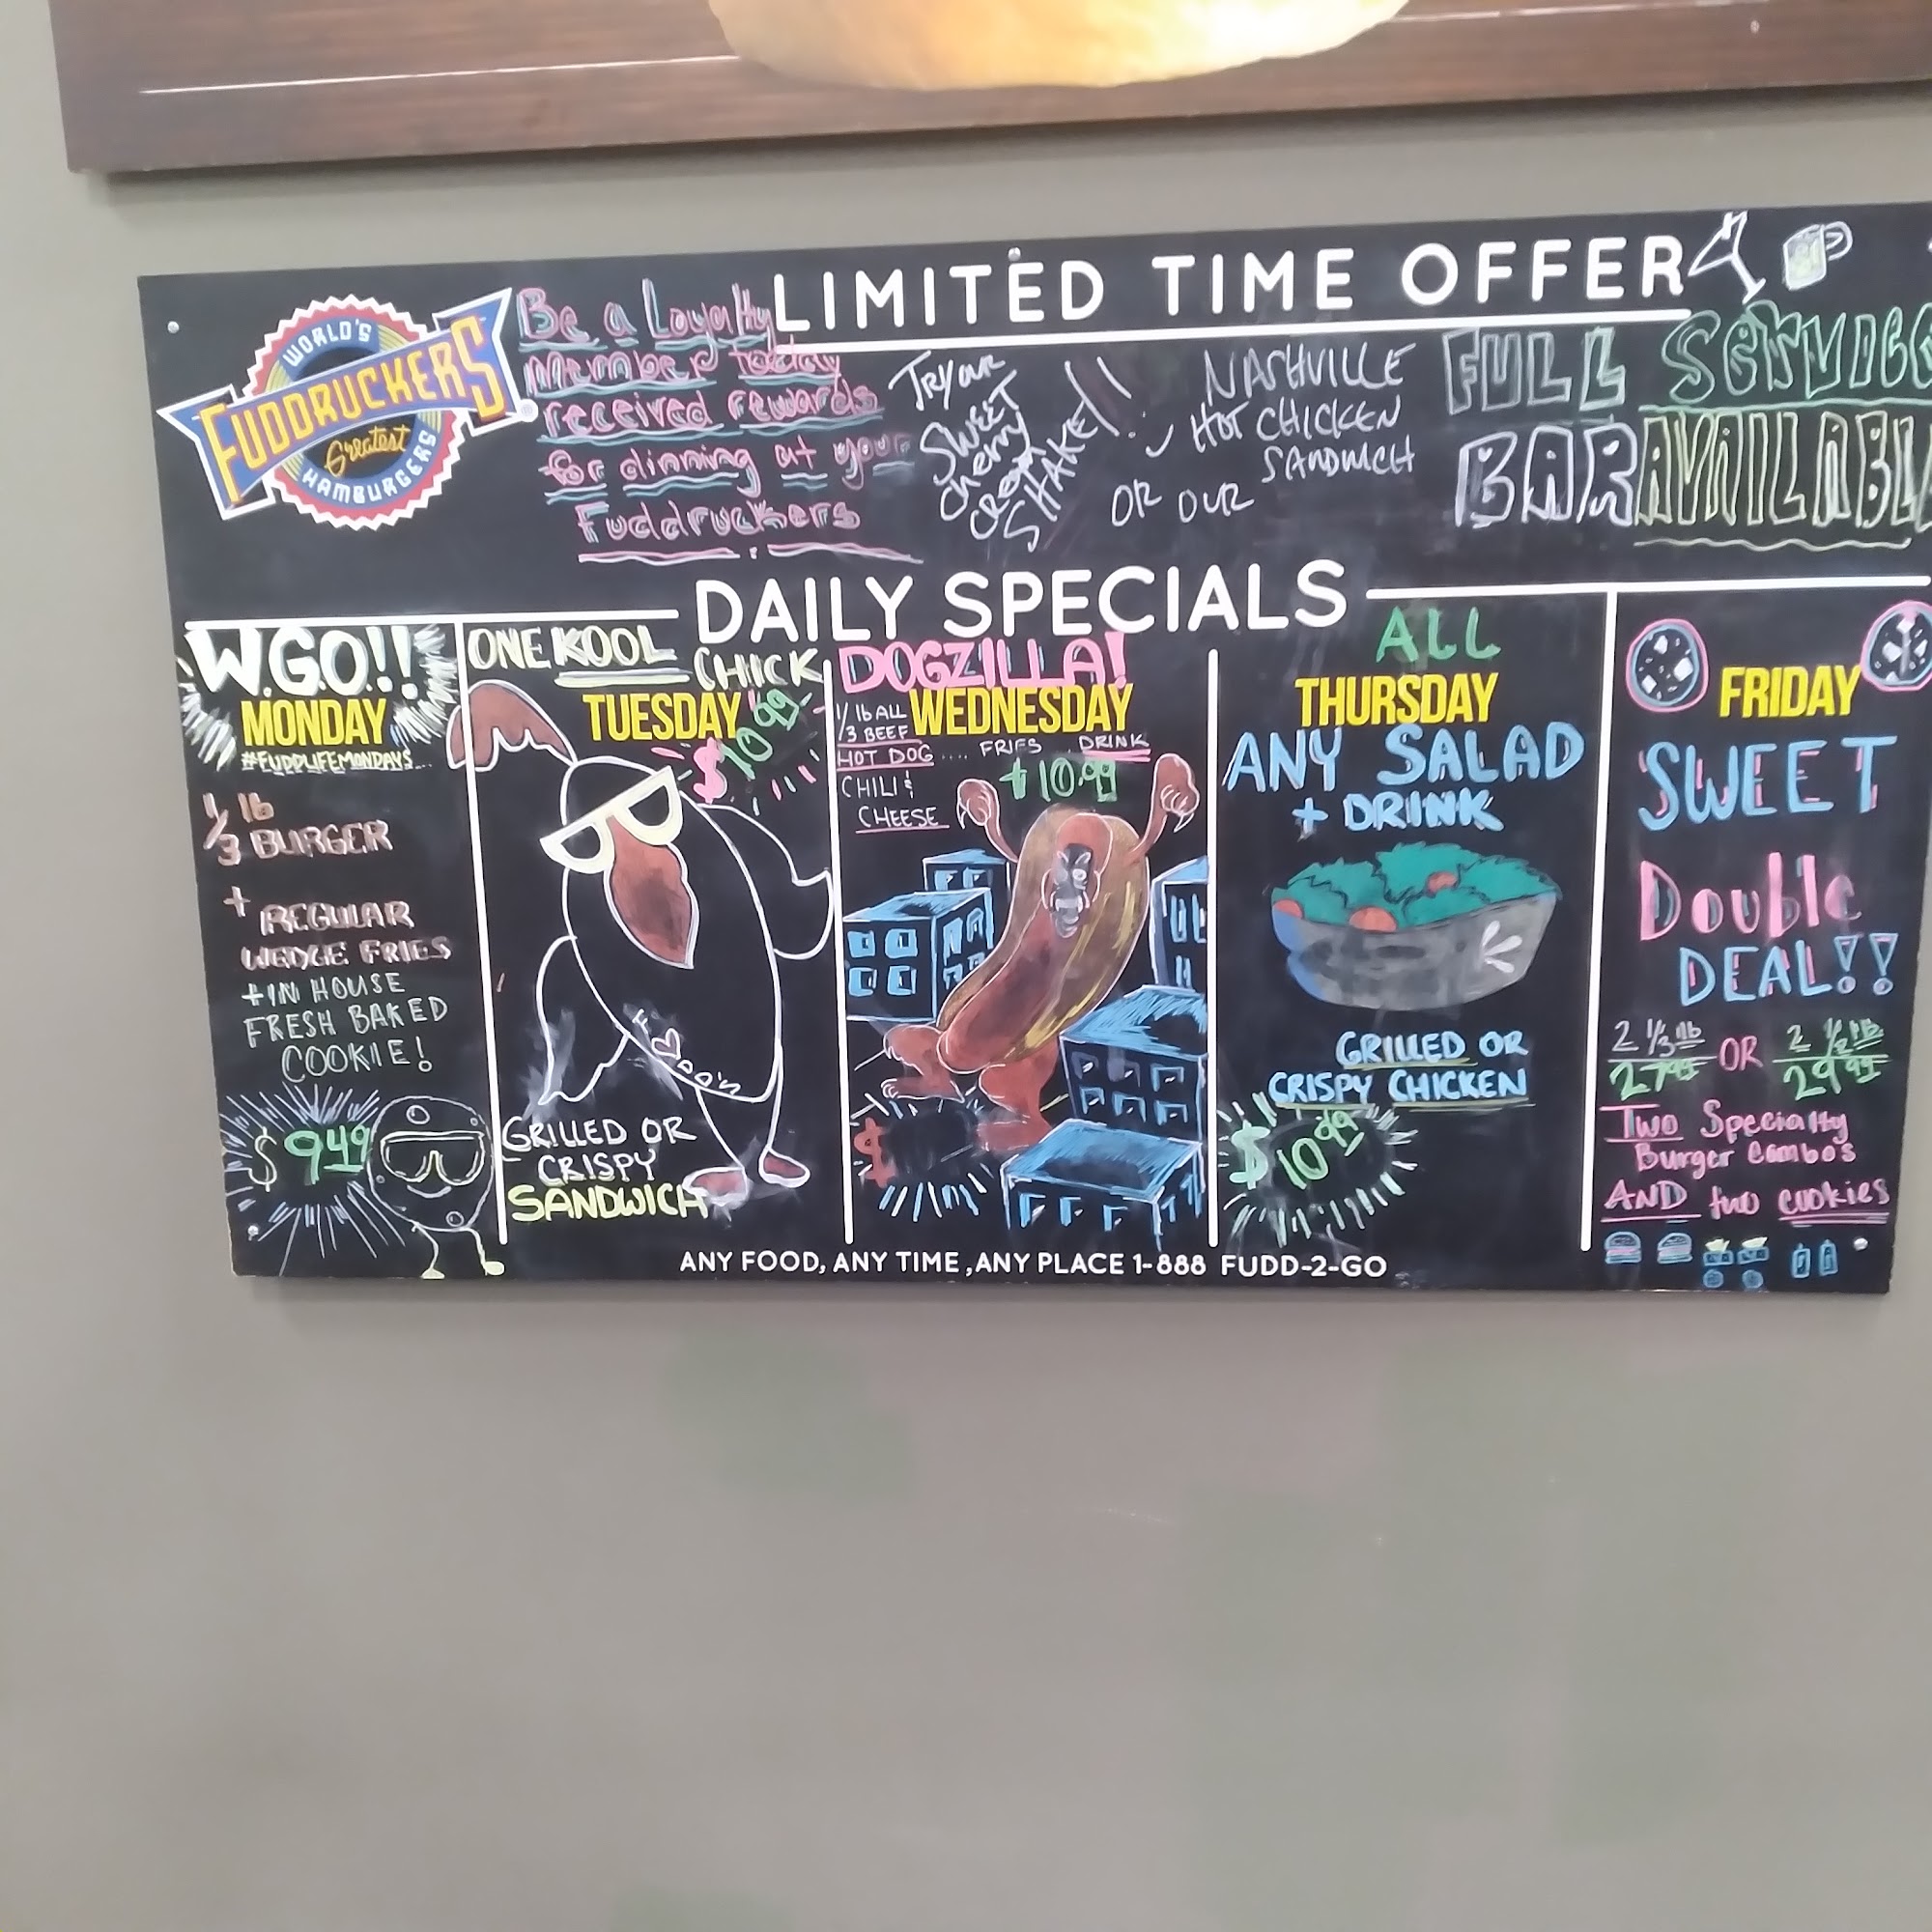 WORLD'S
FUDDRUCKERS
Greatest
HAMBURGERS
Be a Loyalty
Member today
received rewards
for dinning at your
Fuddruckers
LIMITED TIME OFFER
TRY OUR
SWEET
Cherry
CREAM
SHAKE!!
OR OUR
NASHVILLE
HOT CHICKEN
SANDWICH
FULL SERVICE
BAR AVAILABL
DAILY SPECIALS
W.G.O!!
MONDAY
#FUDDLIFEMONDAYS...
1/3 lb
BURGER
+ REGULAR
WEDGE FRIES
+IN HOUSE
FRESH BAKED
COOKIE!
$ 9.49
ONE KOOL
CHICK
TUESDAY
$10.99
GRILLED OR
CRISPY
SANDWICH
DOGZILLA!
WEDNESDAY
1/3 lb ALL
BEEF
HOT DOG .... FRIES DRINK
CHILI &
CHEESE
10.99
$
ALL
THURSDAY
ANY SALAD
+ DRINK
GRILLED OR
CRISPY CHICKEN
$10.99
FRIDAY
SWEET
Double
DEAL!!
2 1/3 lb OR 2 1/2 lb
27.99 29.99
Two Specialty
Burger Combo's
AND two cookies
ANY FOOD, ANY TIME ,ANY PLACE 1-888 FUDD-2-GO